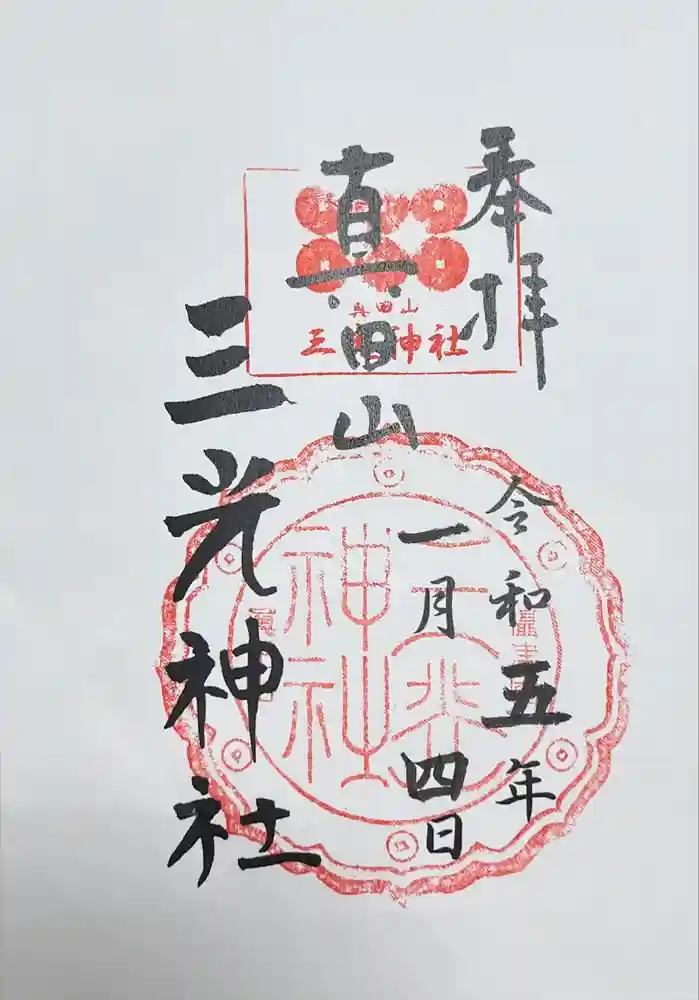 奉拝
令和五年
一月四日
真田山
三光神社
真田山
三光神社
神社